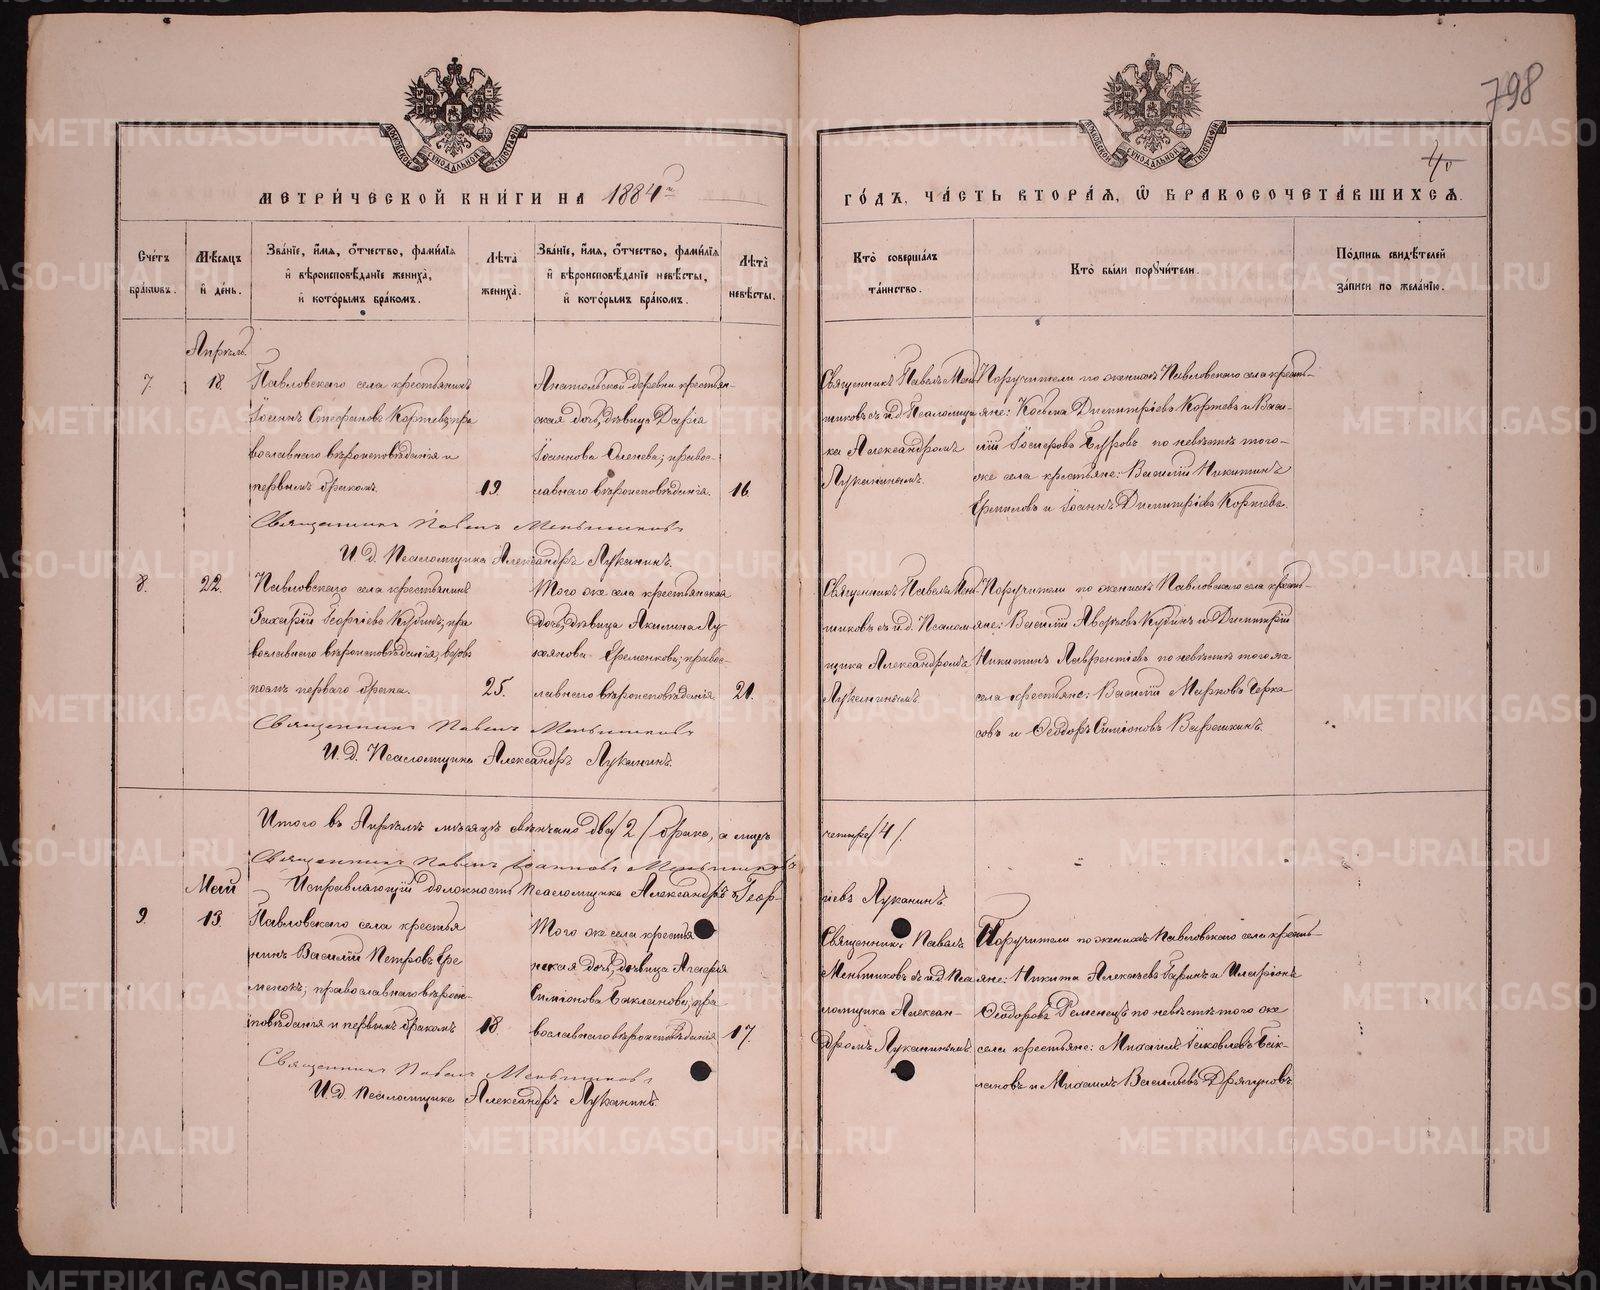 798
40
МЕТРИ́ЧЕСКОЙ КНИ́ГИ НА 1884 г.
ГО́ДЪ, ЧА́СТЬ ВТОРА́Я, Ѿ БРАКОСОЧЕТА́ВШИХСЯ.
Сче́тъ бра́кѡвъ.
Мѣ́сяцъ и҆ де́нь.
Зва́нїе, и҆́мя, ѻ҆́тчество, фами́лїя и҆ вѣроисповѣ́данїе жениха̀, и҆ кото́рымъ бра́комъ.
Лѣ́та жениха̀.
Зва́нїе, и҆́мя, ѻ҆́тчество, фами́лїя и҆ вѣроисповѣ́данїе невѣ́сты, и҆ кото́рымъ бра́комъ.
Лѣ́та невѣ́сты.
Кто̀ соверша́лъ та́инство.
Кто̀ бы́ли порꙋчи́тели.
По́дпись свидѣ́телей за́писи по жела́нїю.
Апрѣль.
7.
18.
Павловскаго села крестьянинъ
Іоаннъ Стефановъ Кортевъ, пра
вославнаго вѣроисповѣданія и
первымъ бракомъ.
19.
Анатольской деревни крестьян-
ская дочь, дѣвица Дарія
Іоаннова Оленева; правос-
лавнаго вѣроисповѣданія.
16.
Священникъ Павелъ Мень
шиковъ съ и. д. Псаломщи
ка Александромъ
Луканинымъ.
Поручители по женихѣ Павловскаго села кресть-
яне: Косьма Димитріевъ Кортевъ и Васи-
лій Бугровъ по невѣстѣ того-
же села крестьяне: Василій Никитинъ
Ермиловъ и Іоаннъ Димитріевъ Кортевъ.
Священникъ Павелъ Меньшиковъ
И. Д. Псаломщика Александръ Луканинъ.
8.
22.
Павловскаго села крестьянинъ
Захарій Георгіевъ Кубинъ; пра
вославнаго вѣроисповѣданія,
послѣ перваго брака.
25.
Того же села крестьянская
дочь, дѣвица Акилина Лу
кьянова Еременкова; правос-
лавнаго вѣроисповѣданія
21.
Священникъ Павелъ Мень
шиковъ съ и. д. Псалом-
щика Александромъ
Луканинымъ.
Поручители по женихѣ Павловскаго села кресть-
яне: Василій Аверьевъ Кубинъ и Димитрій
Никитинъ Лаврентіевъ по невѣстѣ того же
села крестьяне: Василій Марковъ Черка
совъ и Ѳеодоръ Симіоновъ Варешкинъ.
Священникъ Павелъ Меньшиковъ
И. Д. Псаломщика Александръ Луканинъ.
Итого въ Апрѣлѣ мѣсяцѣ вѣнчано два /2/ брака, а лицъ
четыре /4/.
Священникъ Павелъ Іоанновъ Меньшиковъ
Исправляющій должность псаломщика Александръ Геор-
гіевъ Луканинъ.
Май
9.
13.
Павловскаго села крестья
нинъ Василій Петровъ Фе
менокъ; православнаго вѣроис-
повѣданія и первымъ бракомъ
18.
Того же села крестья
нская дочь, дѣвица Агафія
Симіонова Бакланова; пра-
вославнаго вѣроисповѣданія
17.
Священникъ Павелъ
Меньшиковъ съ и. д. Пса
ломщика Алексан-
дромъ Луканинымъ.
Поручители по женихѣ Павловскаго села кресть-
яне: Никита Алексѣевъ Гаринъ и Иларіонъ
Ѳеодоровъ Феменецъ по невѣстѣ того же
села крестьяне: Михаилъ Іаковлевъ Бак-
лановъ и Михаилъ Васильевъ Дрягуновъ.
Священникъ Павелъ Меньшиковъ
И. Д. Псаломщика Александръ Луканинъ.